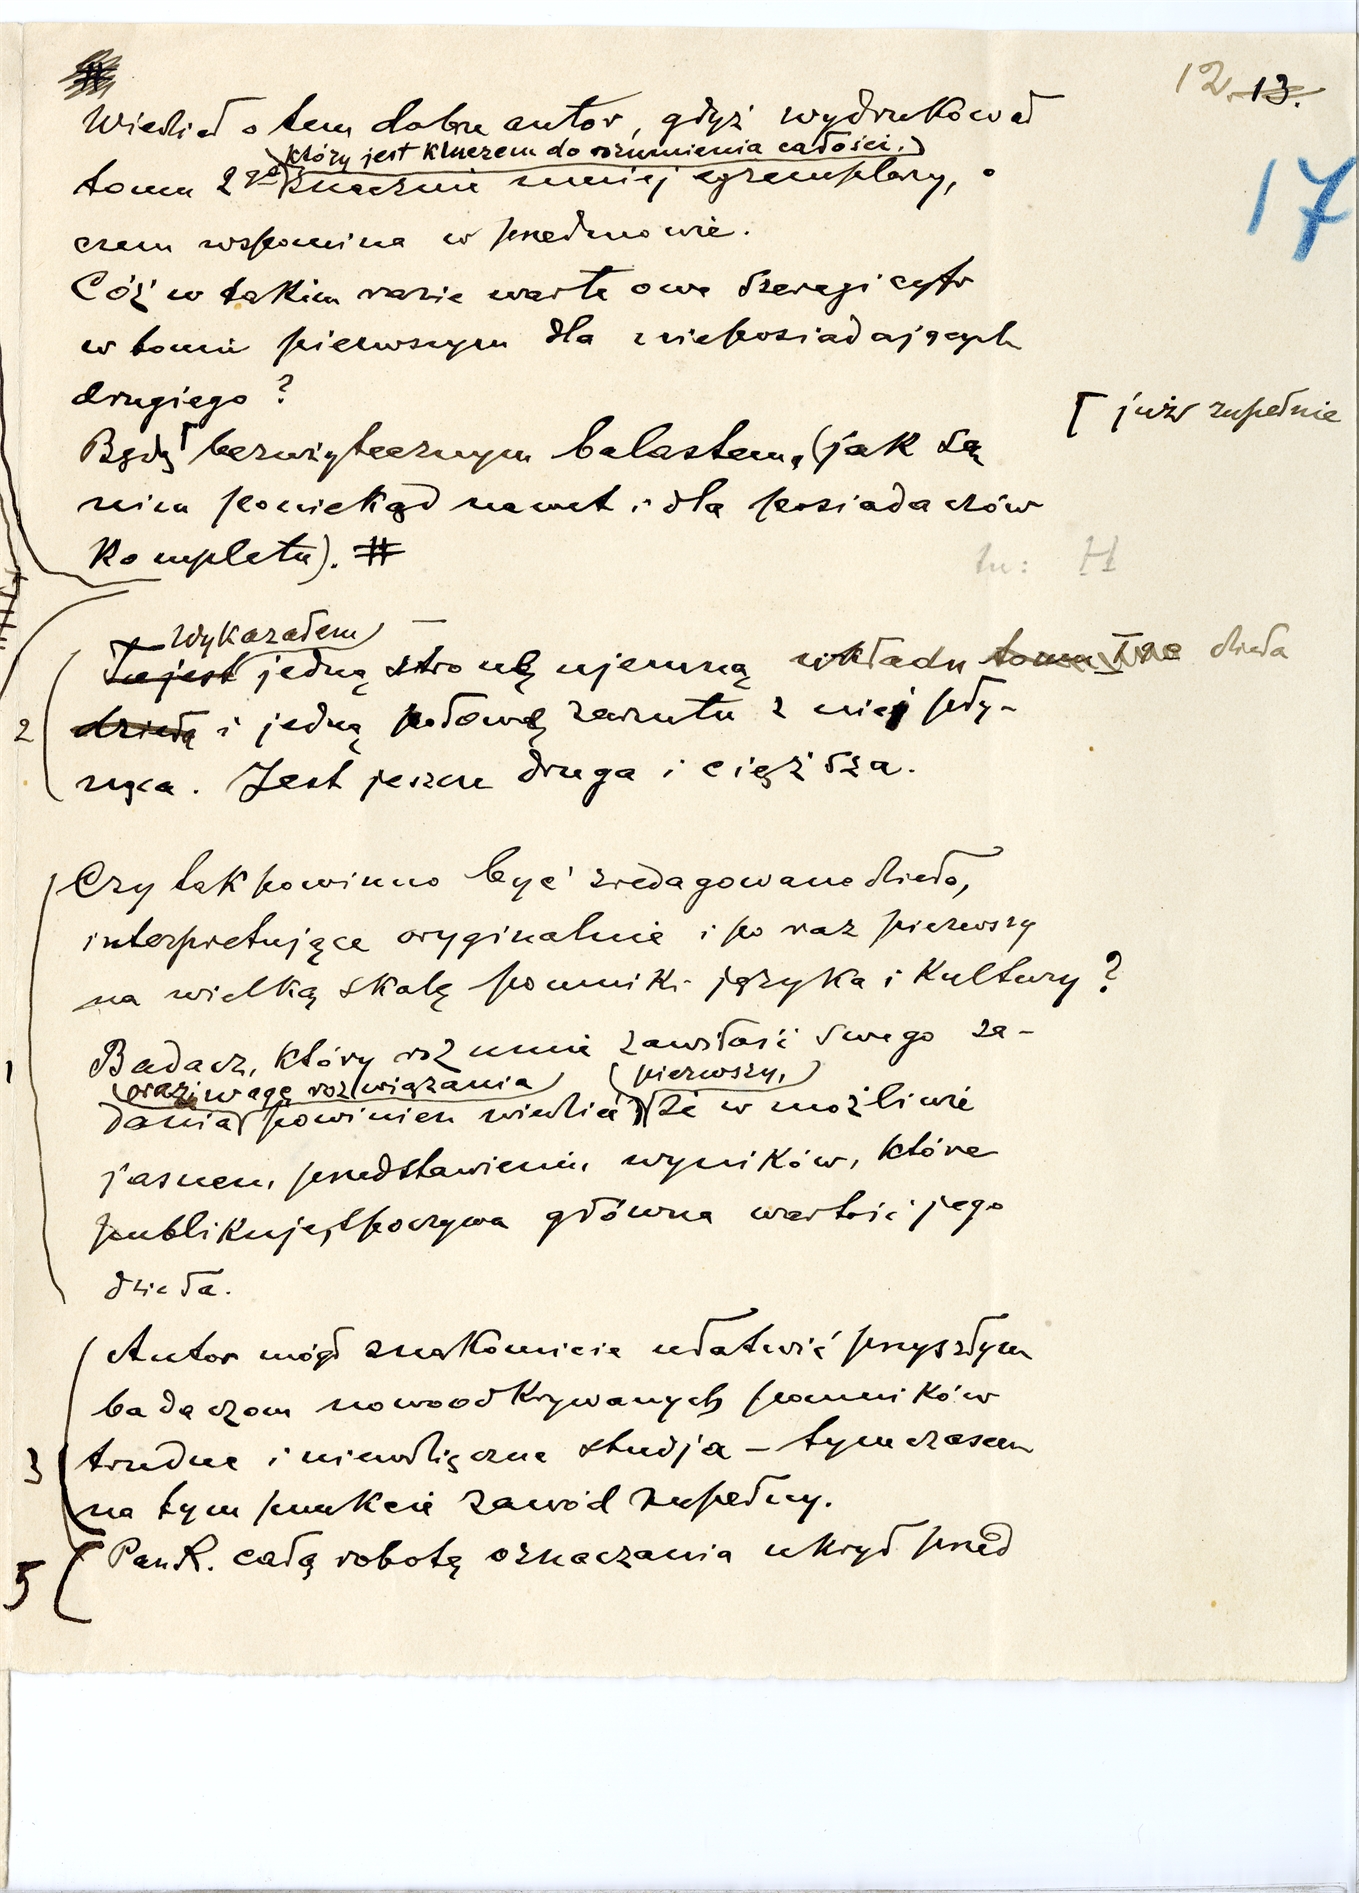 12. 13.
17
Wiedział o tem dobrze autor, gdyż wydrukował
który jest kluczem do rozumienia całości,
tomu 2go znacznie mniej egzemplarzy, o
czem wspomina w przedmowie.
Cóż w takim razie warte owe szeregi cyfr
w tomie pierwszym dla nieposiadających
drugiego?
już zupełnie
Będą bezużytecznym balastem, (jak są
nim poniekąd nawet i dla posiadaczów
kompletu). #
tu: H
Wykazałem
Tu jest jedną stronę ujemną układu tomu I no dzieła
dzieła i jedną połowę zarzutu z niej pły-
nąca. Jest jeszcze druga i cięższa.
2
Czy tak powinno być zredagowane dzieło,
interpretujące oryginalnie i po raz pierwszy
na wielką skalę pomniki języka i kultury?
Badacz, który rozumie zawiłość swego za-
1
oraz wagę rozwiązania pierwszy,
dania powinien wiedzieć że w możliwie
jasnem, przedstawieniu wyników, które
publikuje, spoczywa główna wartość jego
dzieła.
Autor mógł znakomicie ułatwić przyszłym
badaczom nowoodkrywanych pomników
trudne i niewdzięczne studja – tymczasem
3
na tym punkcie zawód zupełny.
Pan R. całą robotę oznaczania ukrył przed
5